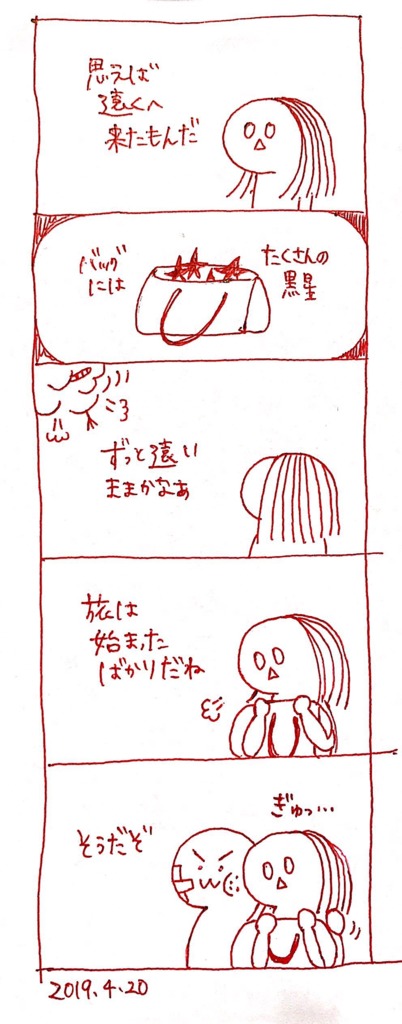 思えば
遠くへ
来たもんだ
たくさんの
黒星
バッグ
には
ずっと遠い
ままかなぁ
旅は
始まった
ばかりだね
ぎゅっ…
そうだぞ
2019.4.20